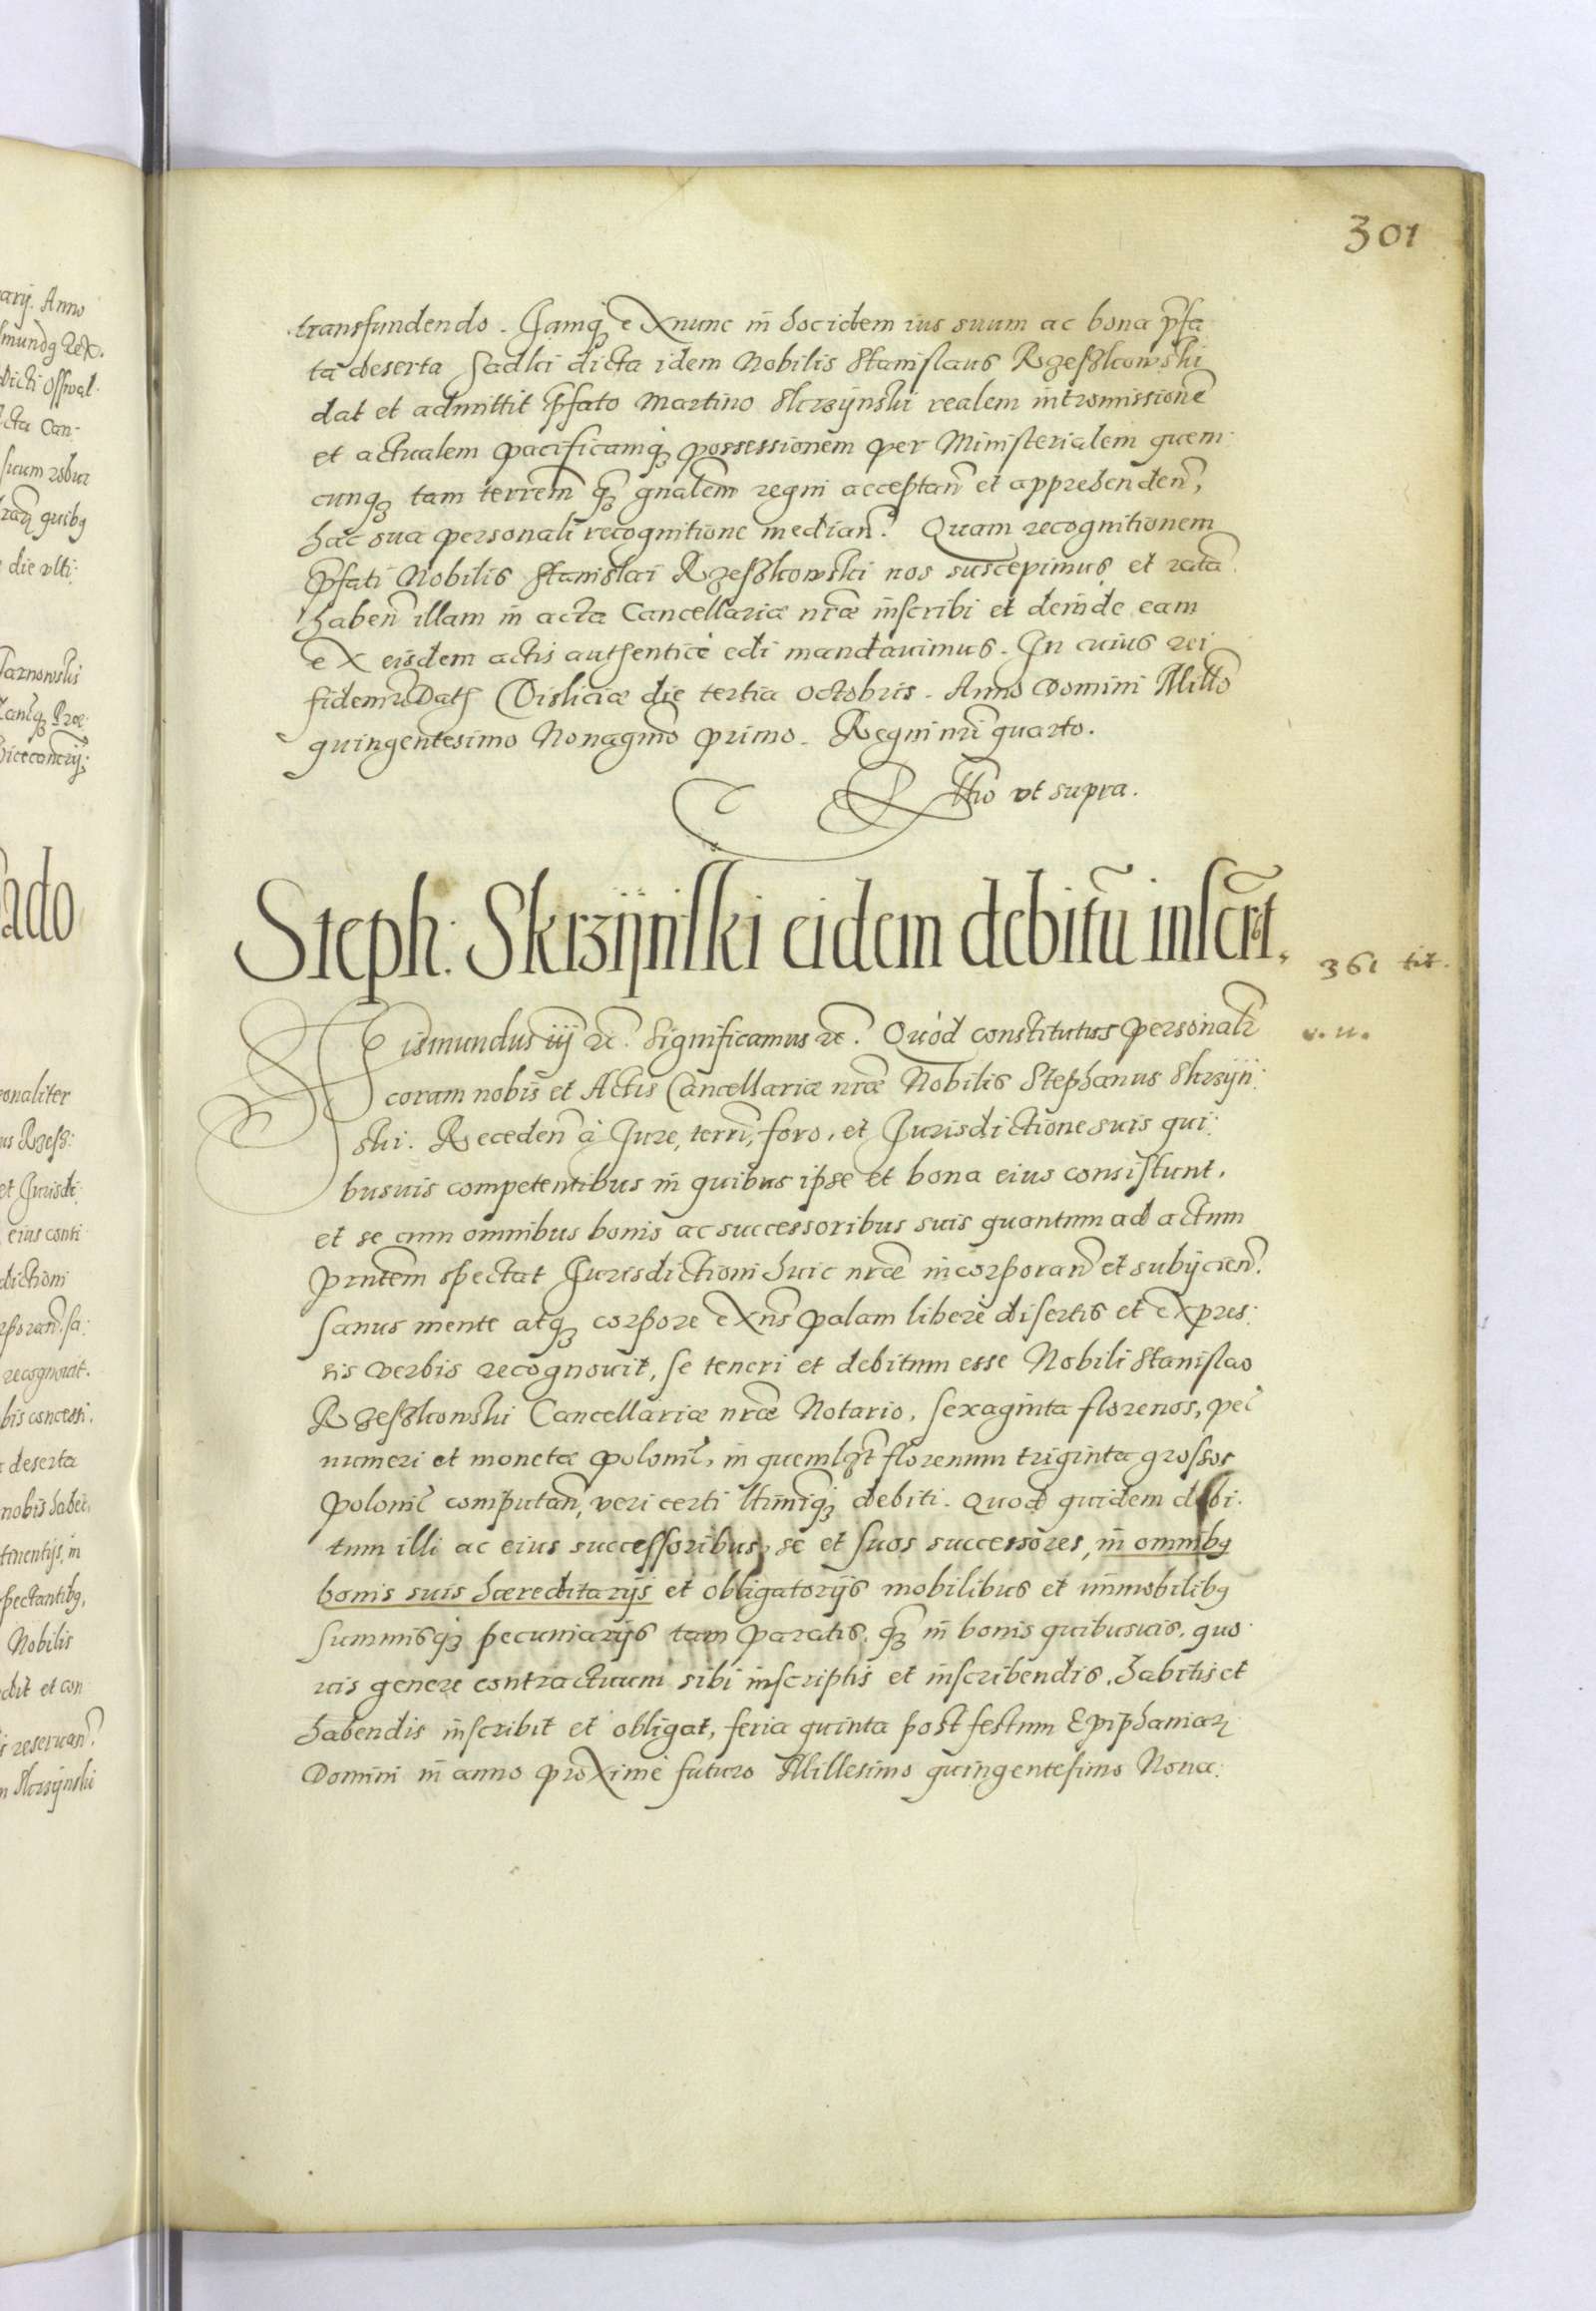 301
transfundendo. Iamq́ꝫ exnunc in hoc idem ius suum ac bona p̃fa
ta deserta Sadki dicta idem Nobilis Stanislaus Rzeszkowski
dat et admittit p̃fato Martino Skrzÿnski realem intromissionẽ
et actualem pacificamq́ꝫ possessionem per Ministerialem quem:
cunqꝫ tam terrẽm q̃ꝫ gñalem regni acceptañ et apprehendeñ,
hac sua personali recognitione mediañ. Quam recognitionem
p̃fati Nobilis Stanislai Rzeszkowski nos suscepimus et ratã
habeñ illam in acta Cancellariæ nr̃æ inscribi et deinde eam
ex eisdem actis authenticè edi mandauimus. In cuius rei
fidem Dat Visliciæ die tertia Octobris. Anno Domini Millo
quingentesimo Nonagmo primo. Regni nr̃i quarto.
ut supra.
Steph: Skrzÿnski eidem debitũ inscrt,
361 tit.
Gismundus iij &c. Significamus &c. Quòd constitutus personalr̃
v. u.
coram nobis et Actis Cancellariæ nr̃æ Nobilis Stephanus Skrzÿn:
ski. Recedeñ à Iure, terr̃i, foro, et Iurisdictione suis qui:
busuis competentibus in quibus ipse et bona eius consistunt,
et se cum omnibus bonis ac successoribus suis quantum ad actum
prñtem spectat Iurisdictioni huic nr̃æ incorporañ et subijcieñ.
Sanus mente atqꝫ corpore exñs palam liberè disertis et expres:
sis verbis recognouit, se teneri et debitum esse Nobili Stanislao
Rzeszkowski Cancellariæ nr̃æ Notario, sexaginta florenos, pec̃
numeri et monetæ polonic̃, in quemlꝫt florenum triginta grossos
polonic̃ computañ, veri certi ltimiq́ꝫ debiti. Quod quidem debi:
tum illi ac eius successoribus, se et suos successores, in omnibꝰ
bonis suis hæreditarijs et obligatorijs mobilibus et immobilibꝰ
summisq́ꝫ pecuniarijs tam paratis, q̃ꝫ in bonis quibusuis, quo:
uis genere contractuum sibi inscriptis et inscribendis, habitis et
habendis inscribit et obligat, feria quinta post festum Epiphaniaꝝ
Domini in anno proximè futuro Millesimo quingentesimo Nona: